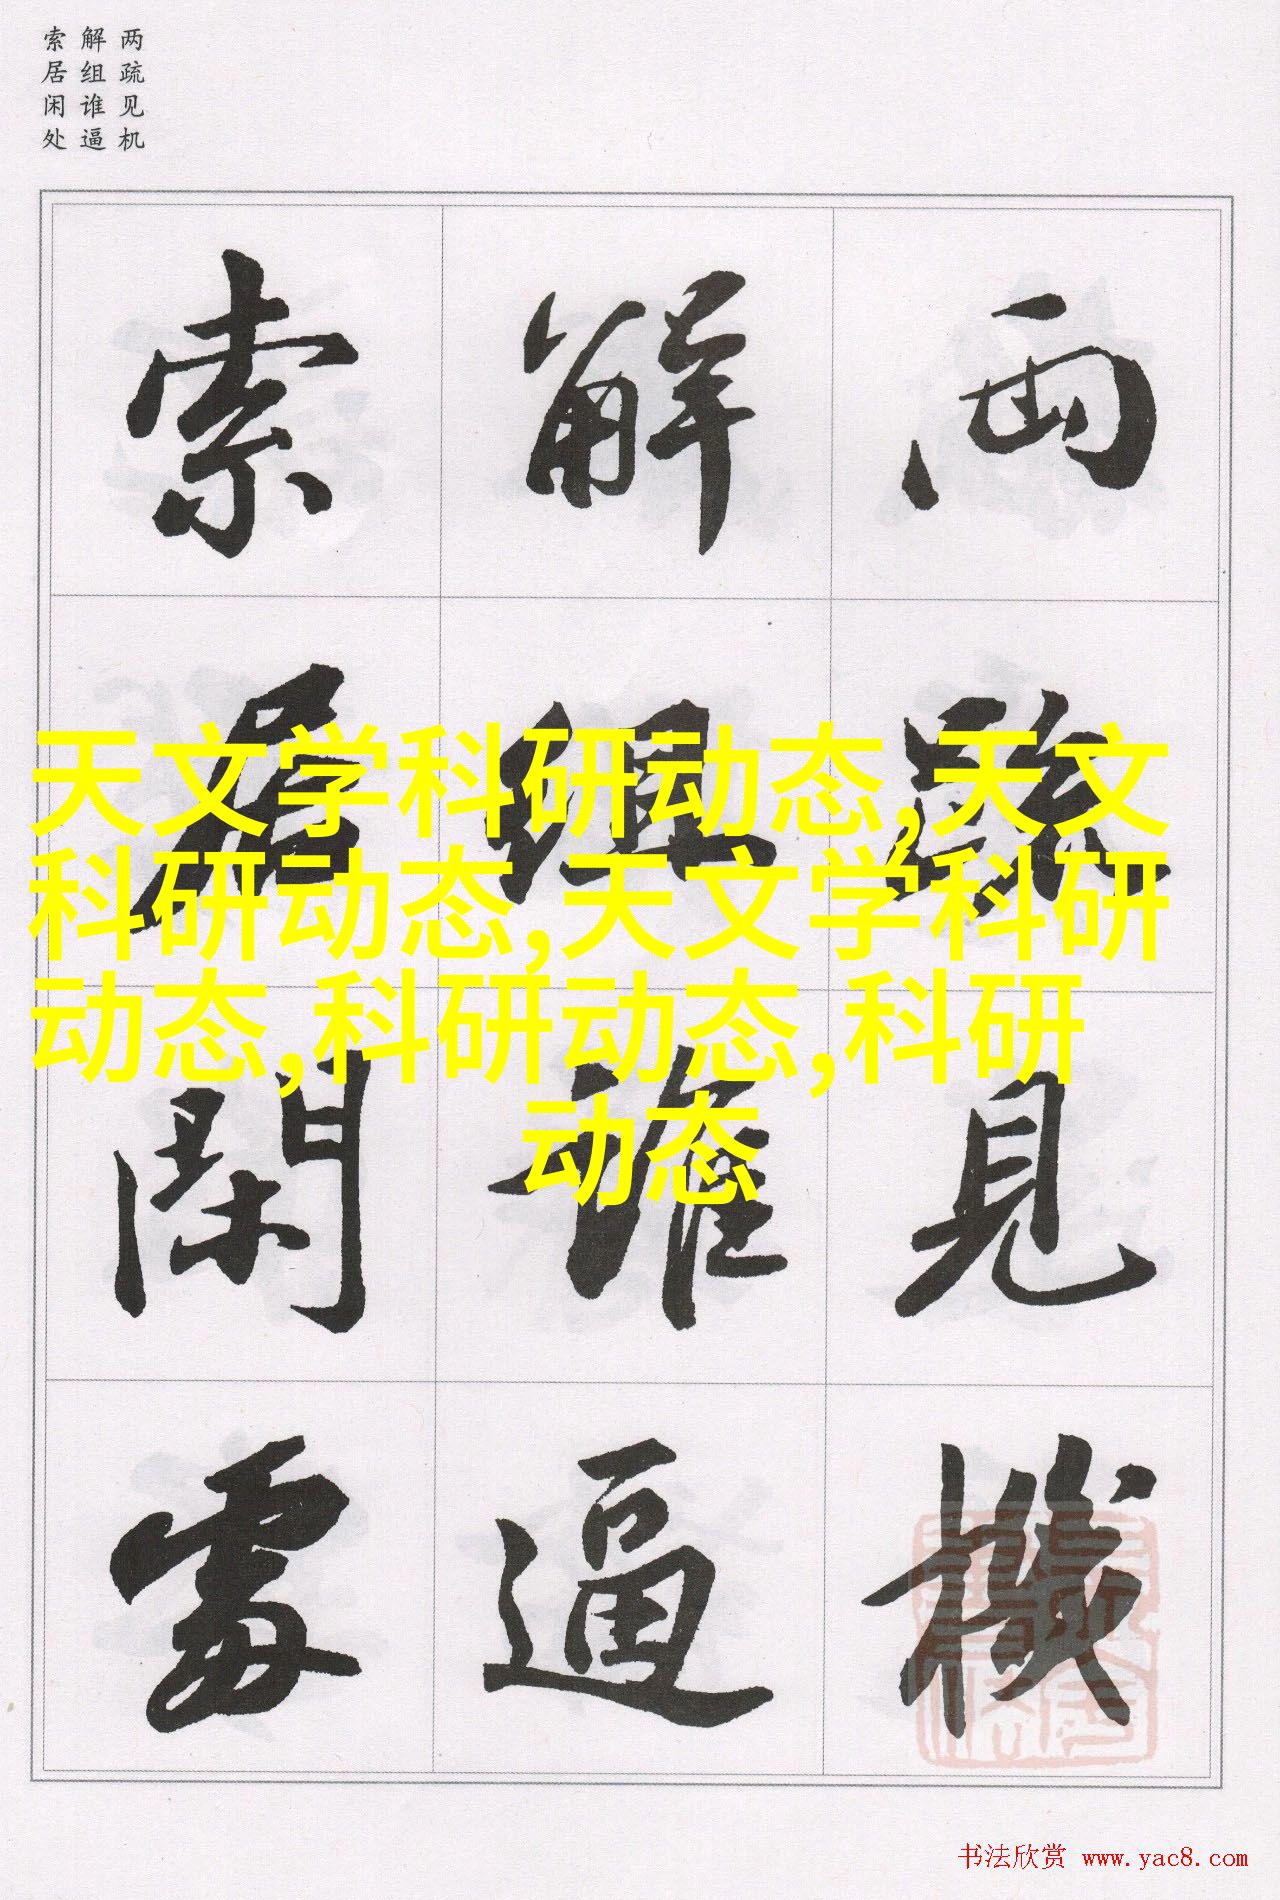 两疏见机
解组谁逼
索居闲处
兩疏見機
解組誰逼
索居閑處
天文学科研动态,天文
科研动态,天文学科研
动态,科研动态,科研
动态
书法欣赏 www.yac8.com